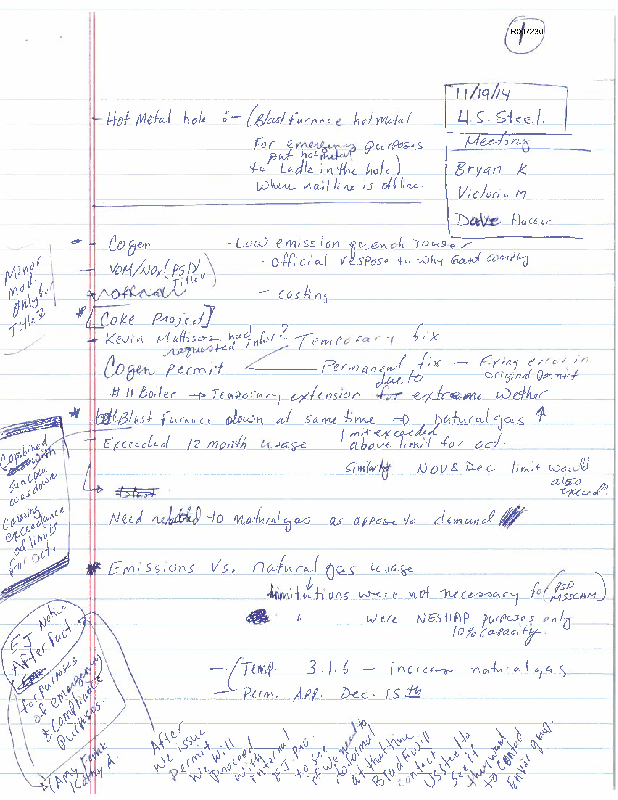 1
11/19/14
U.S. Steel
Meeting
Bryan K
Victoria M
Dave
- Hot Metal hole :- (Blast furnace hot metal
For emergency purposes
put hot metal
to Ladle in the hole)
when is offline.
- Cogen - Low emission quench Tower
- VOM/NOx (PSD/Title V) - official respose to why
- casting
Minor
Mod.
only for
Title V
* [Coke Project]
- Kevin Mattison had
requested infor?
Temporary fix
Cogen permit Permanent fix - Fixing error in
original permit
#11 Boiler → Temporary extension due to extreme wether
* Blast Furnace down at same time → natural gas ↑
- Exceeded 12 month usage limit exceeded
above limit for oct.
Similarly NOV & Dec limit would
also
exceed?
Combined
with
sun coke
was down
Causing
exceedance
of limits
for Oct.
Need related to natural gas as oppose to demand
* Emissions vs. natural gas usage
limitations were not necessary for (PSD
MSSCAM)
were NESHAP purposes only
10% capacity.
EJ Notice
After fact
for purposes
of emergency
& compliance
purposes.
- (Temp. 3.1.6 - increase natural gas
- Perm. App. Dec. 15th
After
we issue
permit
we will
proceed
with
internal
EJ
to see
if we need to
do formal
at that time
Brad F will
contact
US steel to
see if
they want
to
(Amy
Kathy A.